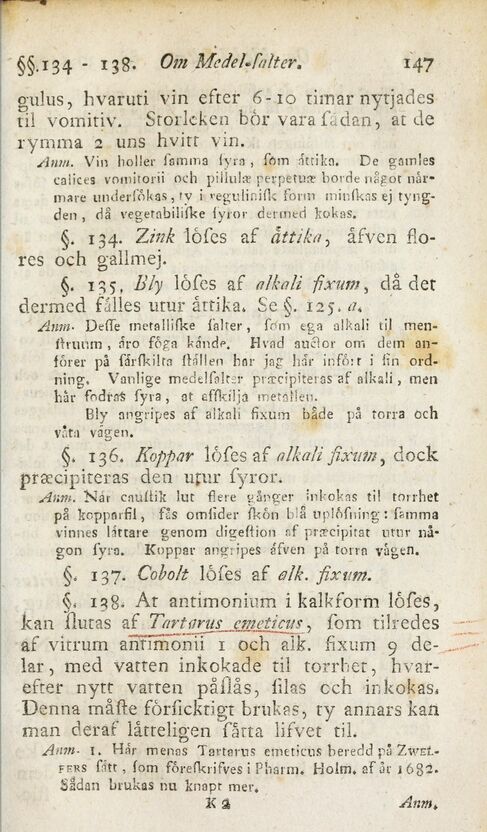 §§.134 - 138. Om Medel-salter. 147
gulus, hvaruti vin efter 6-10 timar nytjades
til vomitiv. Storleken bör vara sådan, at de
rymma 2 uns hvitt vin.
Anm. Vin holler samma syra, som ättika. De gamles
calices vomitorii och pillulæ perpetuæ borde något när-
mare undersökas, ty i regulinisk form minskas ej tyng-
den, då vegetabiliske syror dermed kokas.
§. 134. Zink löses af ättika, äfven flo-
res och gallmej.
§. 135. Bly löses af alkali fixum, då det
dermed fälles utur ättika. Se §. 125. a.
Anm. Desse metalliske salter, som ega alkali til men-
struum, äro föga kände. Hvad auctor om dem an-
förer på särskilta ställen har jag här infört i sin ord-
ning. Vanlige medelsalter præcipiteras af alkali, men
här fodras syra, at afskilja metallen.
Bly angripes af alkali fixum både på torra och
våta vägen.
§. 136. Koppar löses af alkali fixum, dock
præcipiteras den utur syror.
Anm. När caustik lut flere gånger inkokas til torrhet
på kopparfil, fås omsider skön blå uplösning: samma
vinnes lättare genom digestion af præcipitat utur nå-
gon syra. Koppar angripes äfven på torra vägen.
§. 137. Cobolt löses af alk. fixum.
§. 138. At antimonium i kalkform löses,
kan slutas af Tartarus emeticus, som tilredes
af vitrum antimonii 1 och alk. fixum 9 de-
lar, med vatten inkokade til torrhet, hvar-
efter nytt vatten påslås, silas och inkokas.
Denna måste försicktigt brukas, ty annars kan
man deraf lätteligen sätta lifvet til.
Anm. 1. Här menas Tartarus emeticus beredd på ZWEL-
FERS sätt, som föreskrifves i Pharm. Holm. af år 1682.
Sådan brukas nu knapt mer.
K 2 Anm.